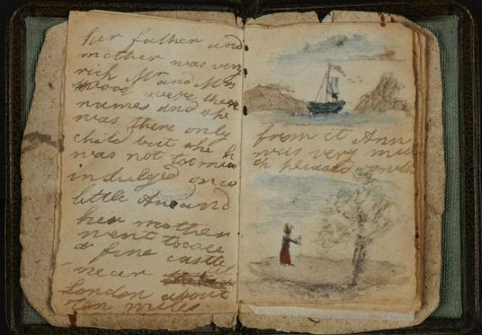 her father and
mother was very
rich Mr and Mrs
Wood were there
names and she
was there only
child but she
was not too mea
indulged once
little Ane and
her mother
went to see
a fine castle
near
London about
ten miles
from it Ann
was very mu
ch pleased with